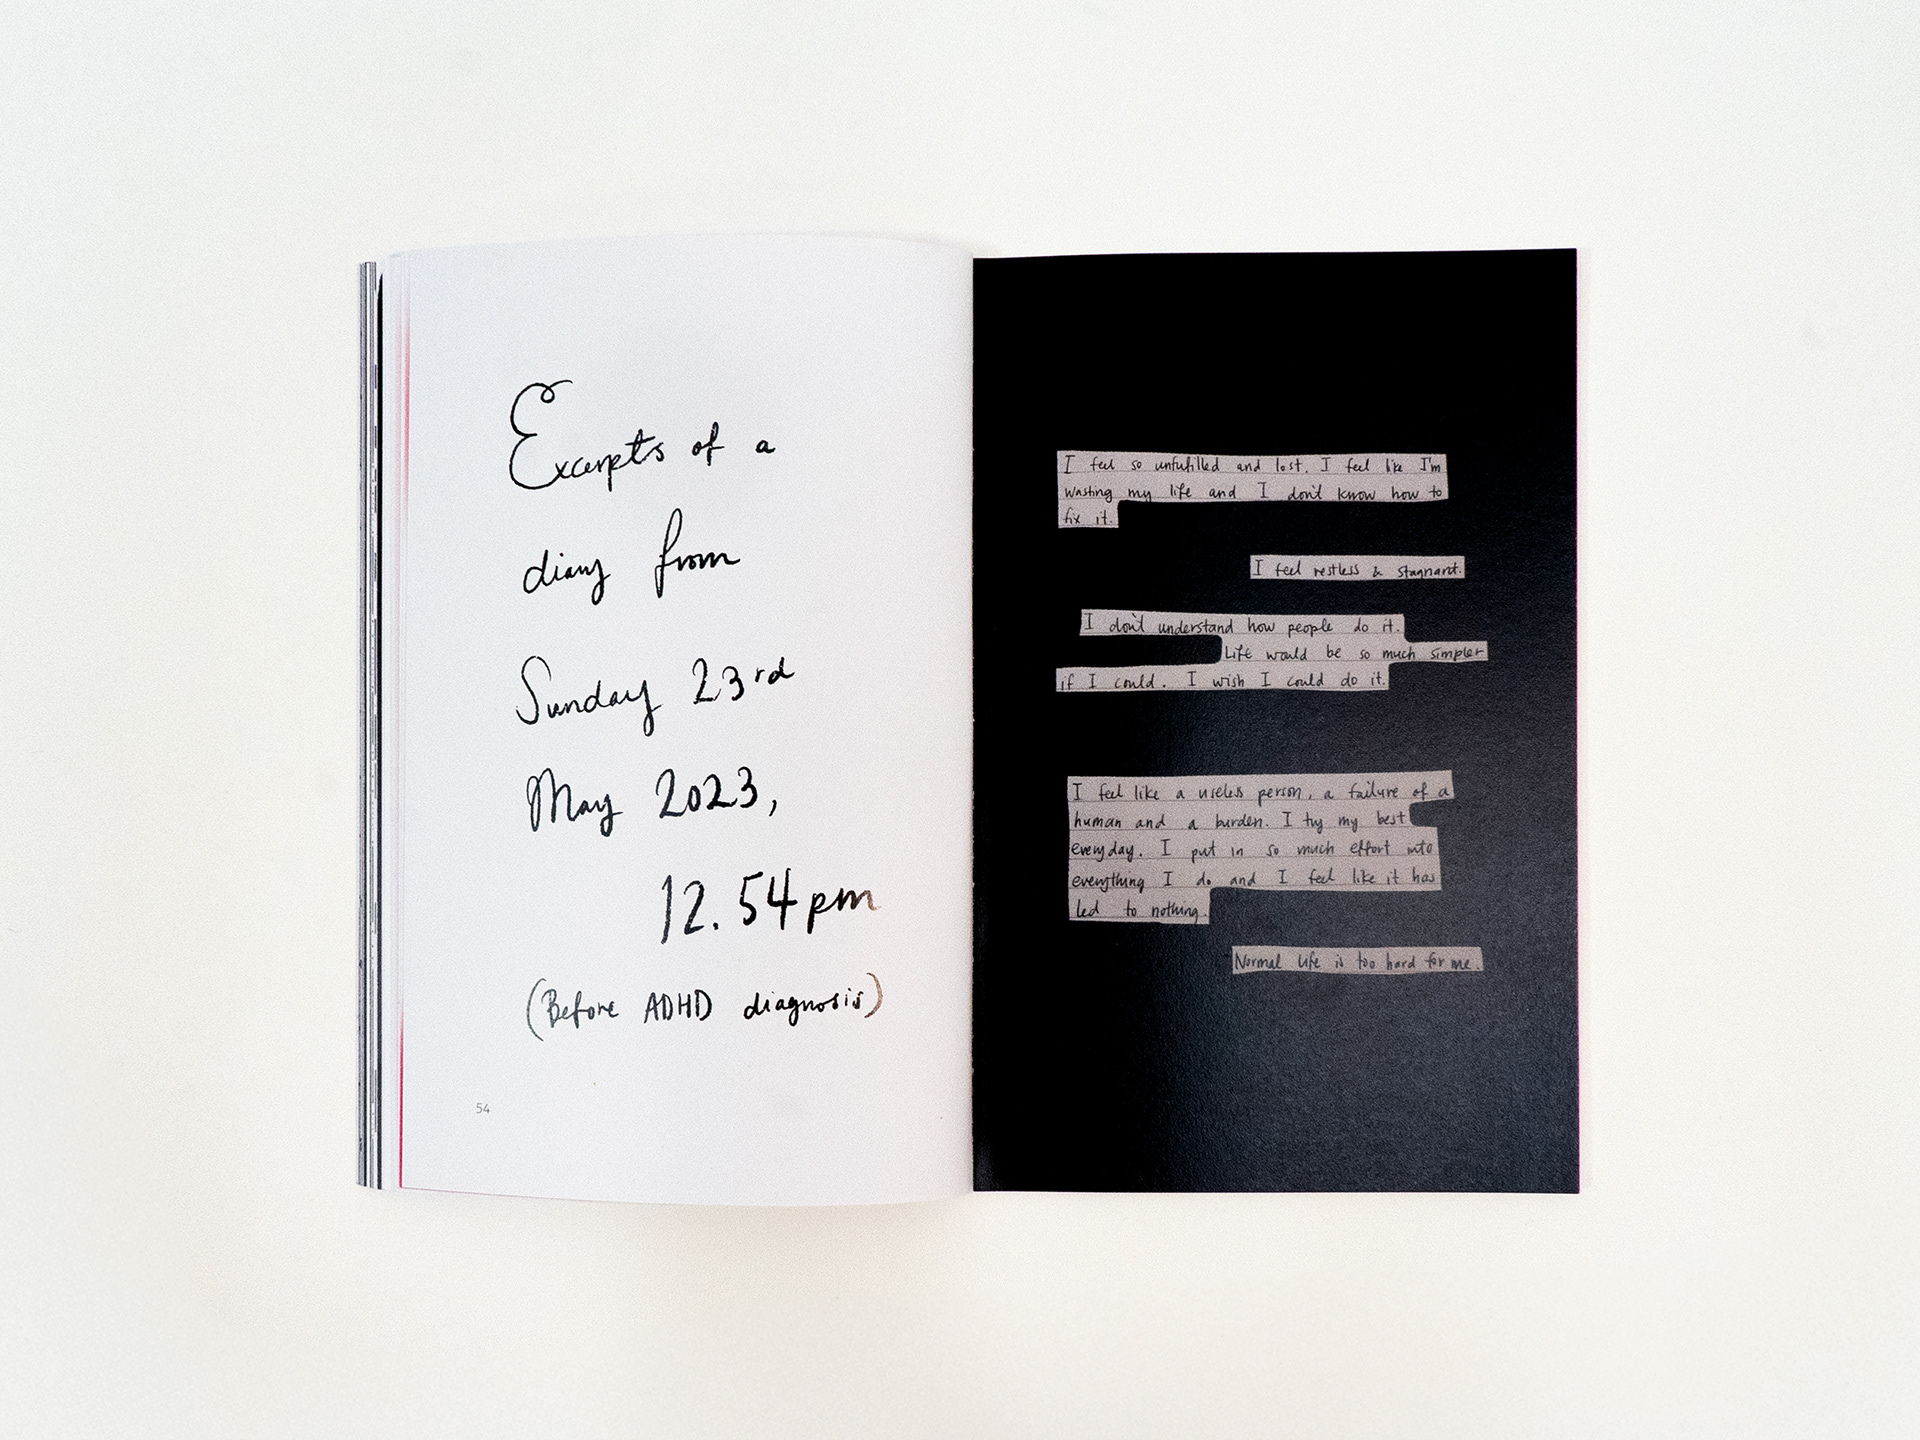 Excerpts of a
diary from
Sunday 23rd
May 2023,
12.54pm
(Before ADHD diagnosis)
54
I feel so unfufilled and lost. I feel like I'm
wasting my life and I don't know how to
fix it.
I feel restless & stagnant.
I don't understand how people do it.
Life would be so much simpler
if I could. I wish I could do it.
I feel like a useless person, a failure of a
human and a burden. I try my best
everyday. I put in so much effort into
everything I do and I feel like it has
led to nothing.
Normal life is too hard for me.